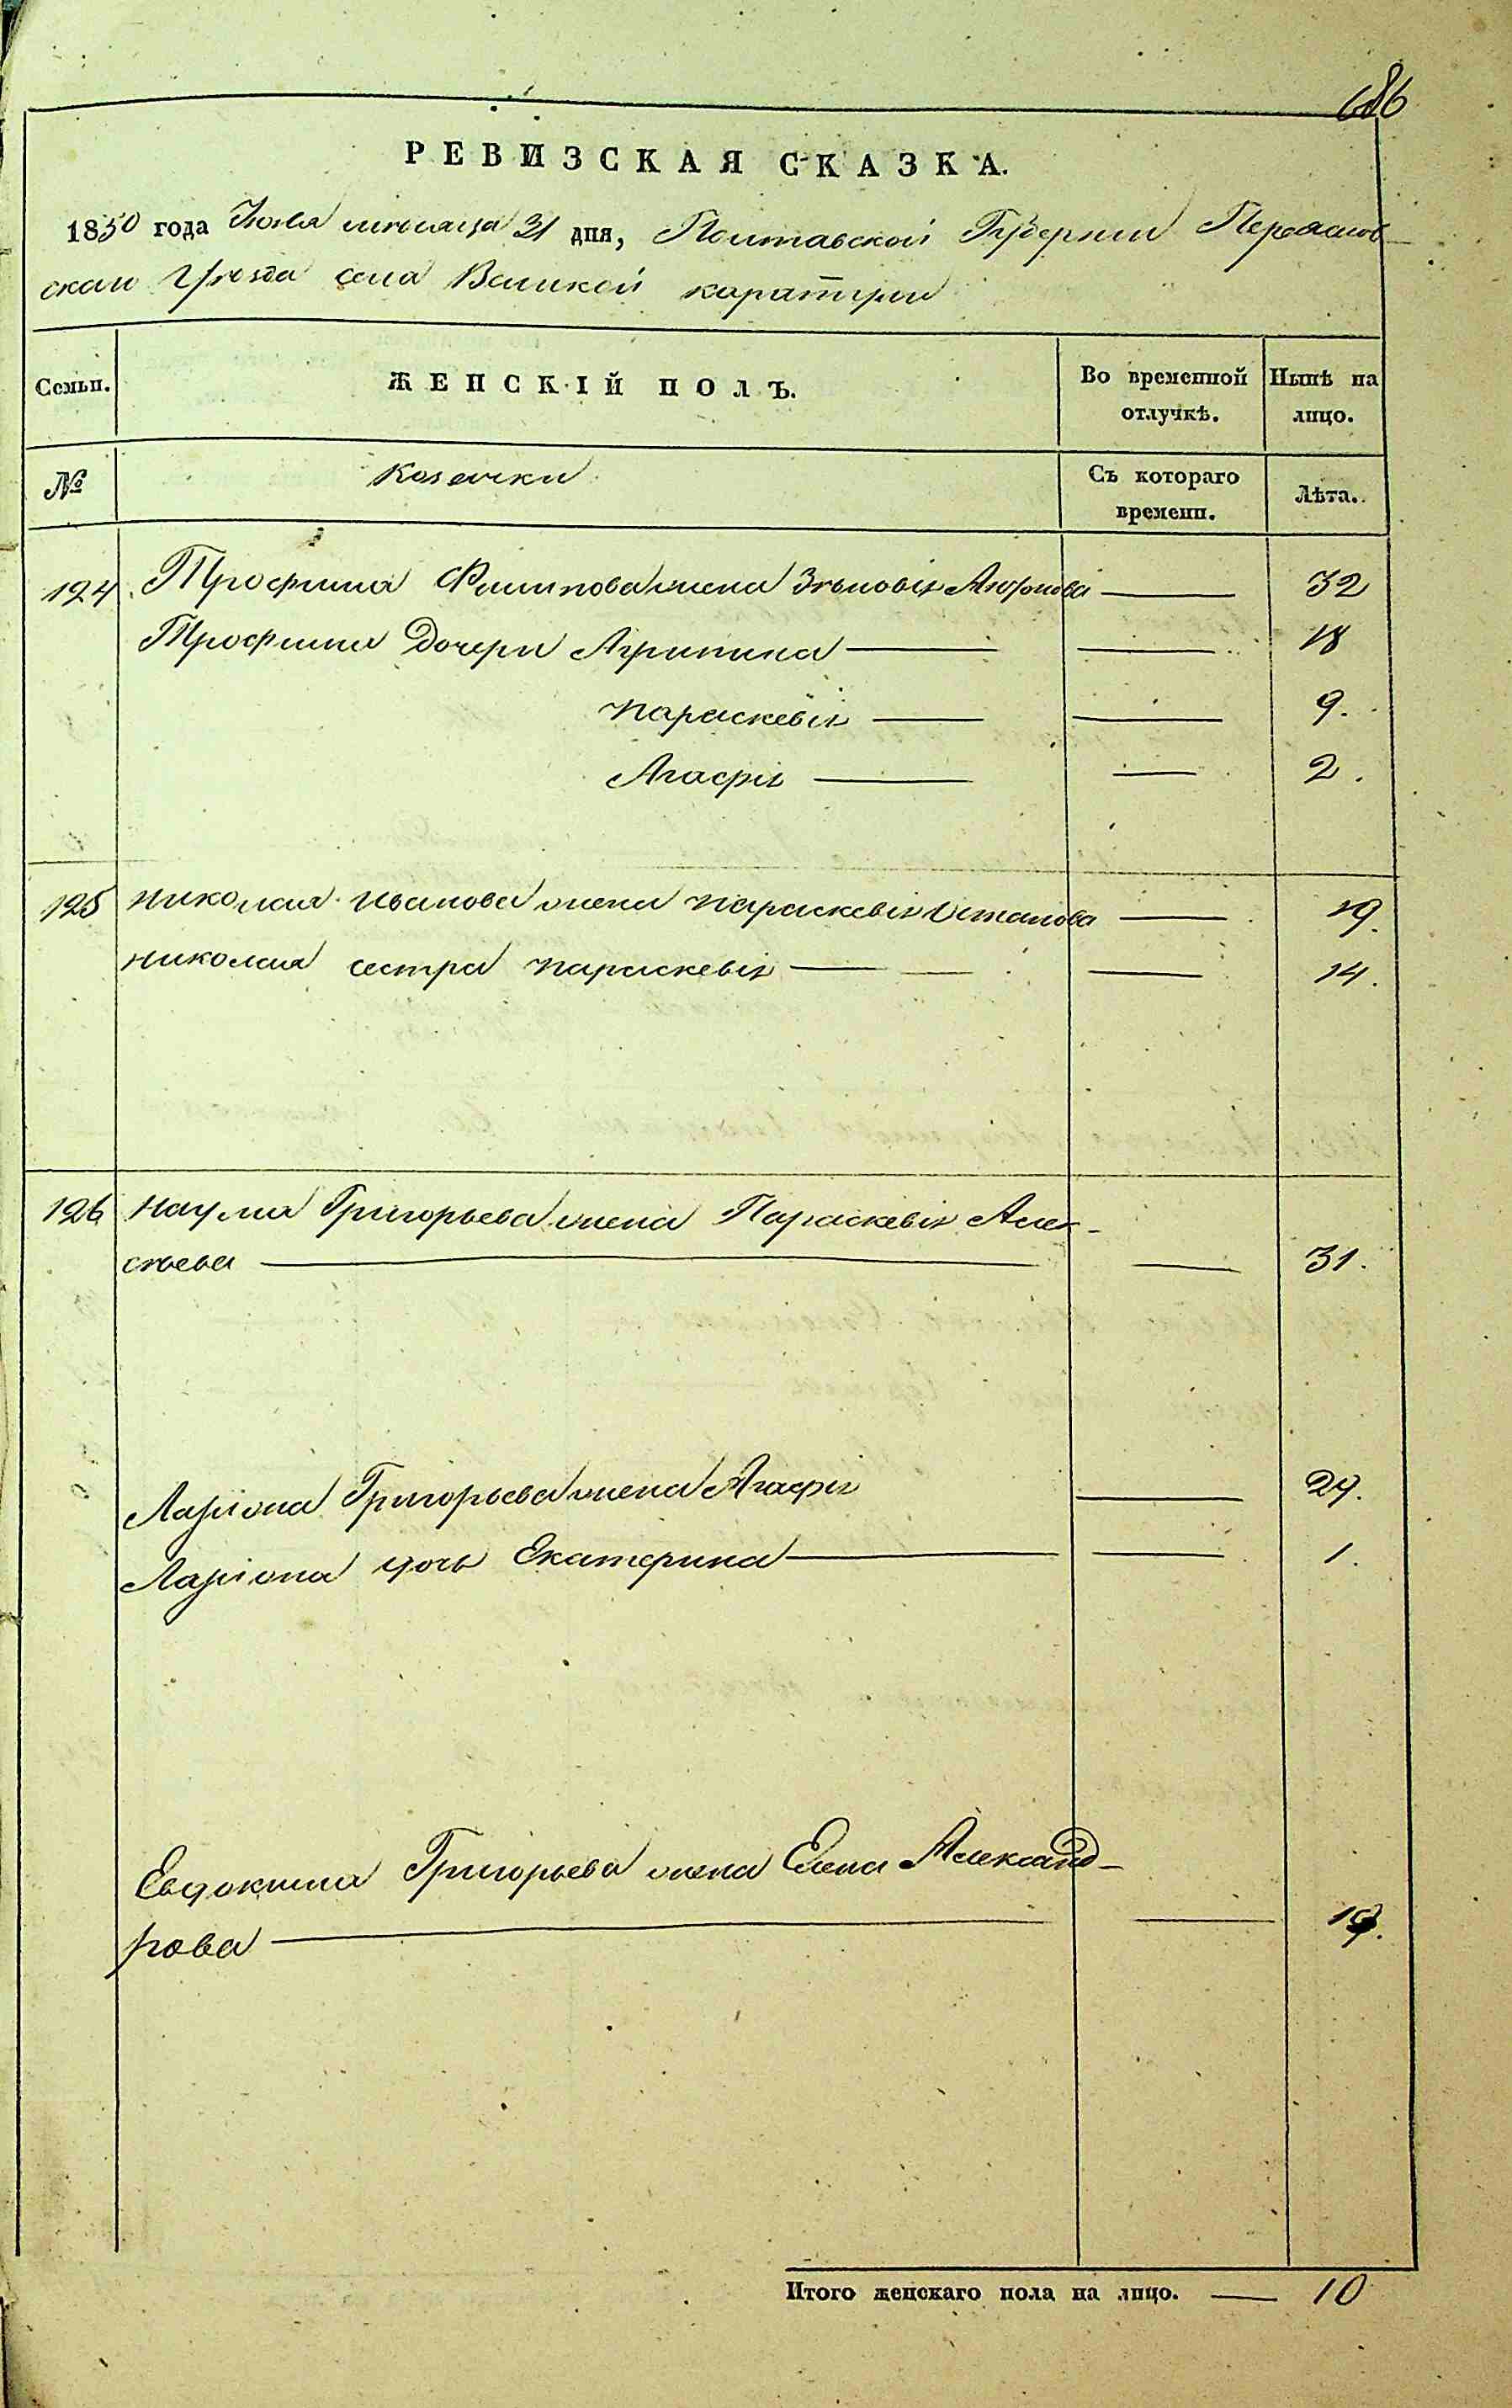 686
РЕВИЗСКАЯ СКАЗКА.
1850 года Июля месяца 31 дня, Полтавской Губернии Переяслов-
скаго Уѣзда села Великой каратули
Семьи. ЖЕНСКІЙ ПОЛЪ. Во временной отлучкѣ. Нынѣ на лицо.
№ Козачки Съ котораго времени. Лѣта.
124. Трофима Филипова жена Зѣновія 32
Трофима Дочери Агрипина — — 18
Параскевія — — 9.
Агафія — — 2.
125 Николая Иванова жена Параскевія Остапова — 19.
Николая сестра Параскевія — — 14.
126 Наума Григорьева жена Параскевія Алек-
сѣева — — 31.
Ларіона Григорьева жена Агафія — 29.
Ларіона дочь Екатерина — — 1.
Евдокима Григорьева жена Елена Александ-
рова — — 19.
Итого женскаго пола на лицо. — 10